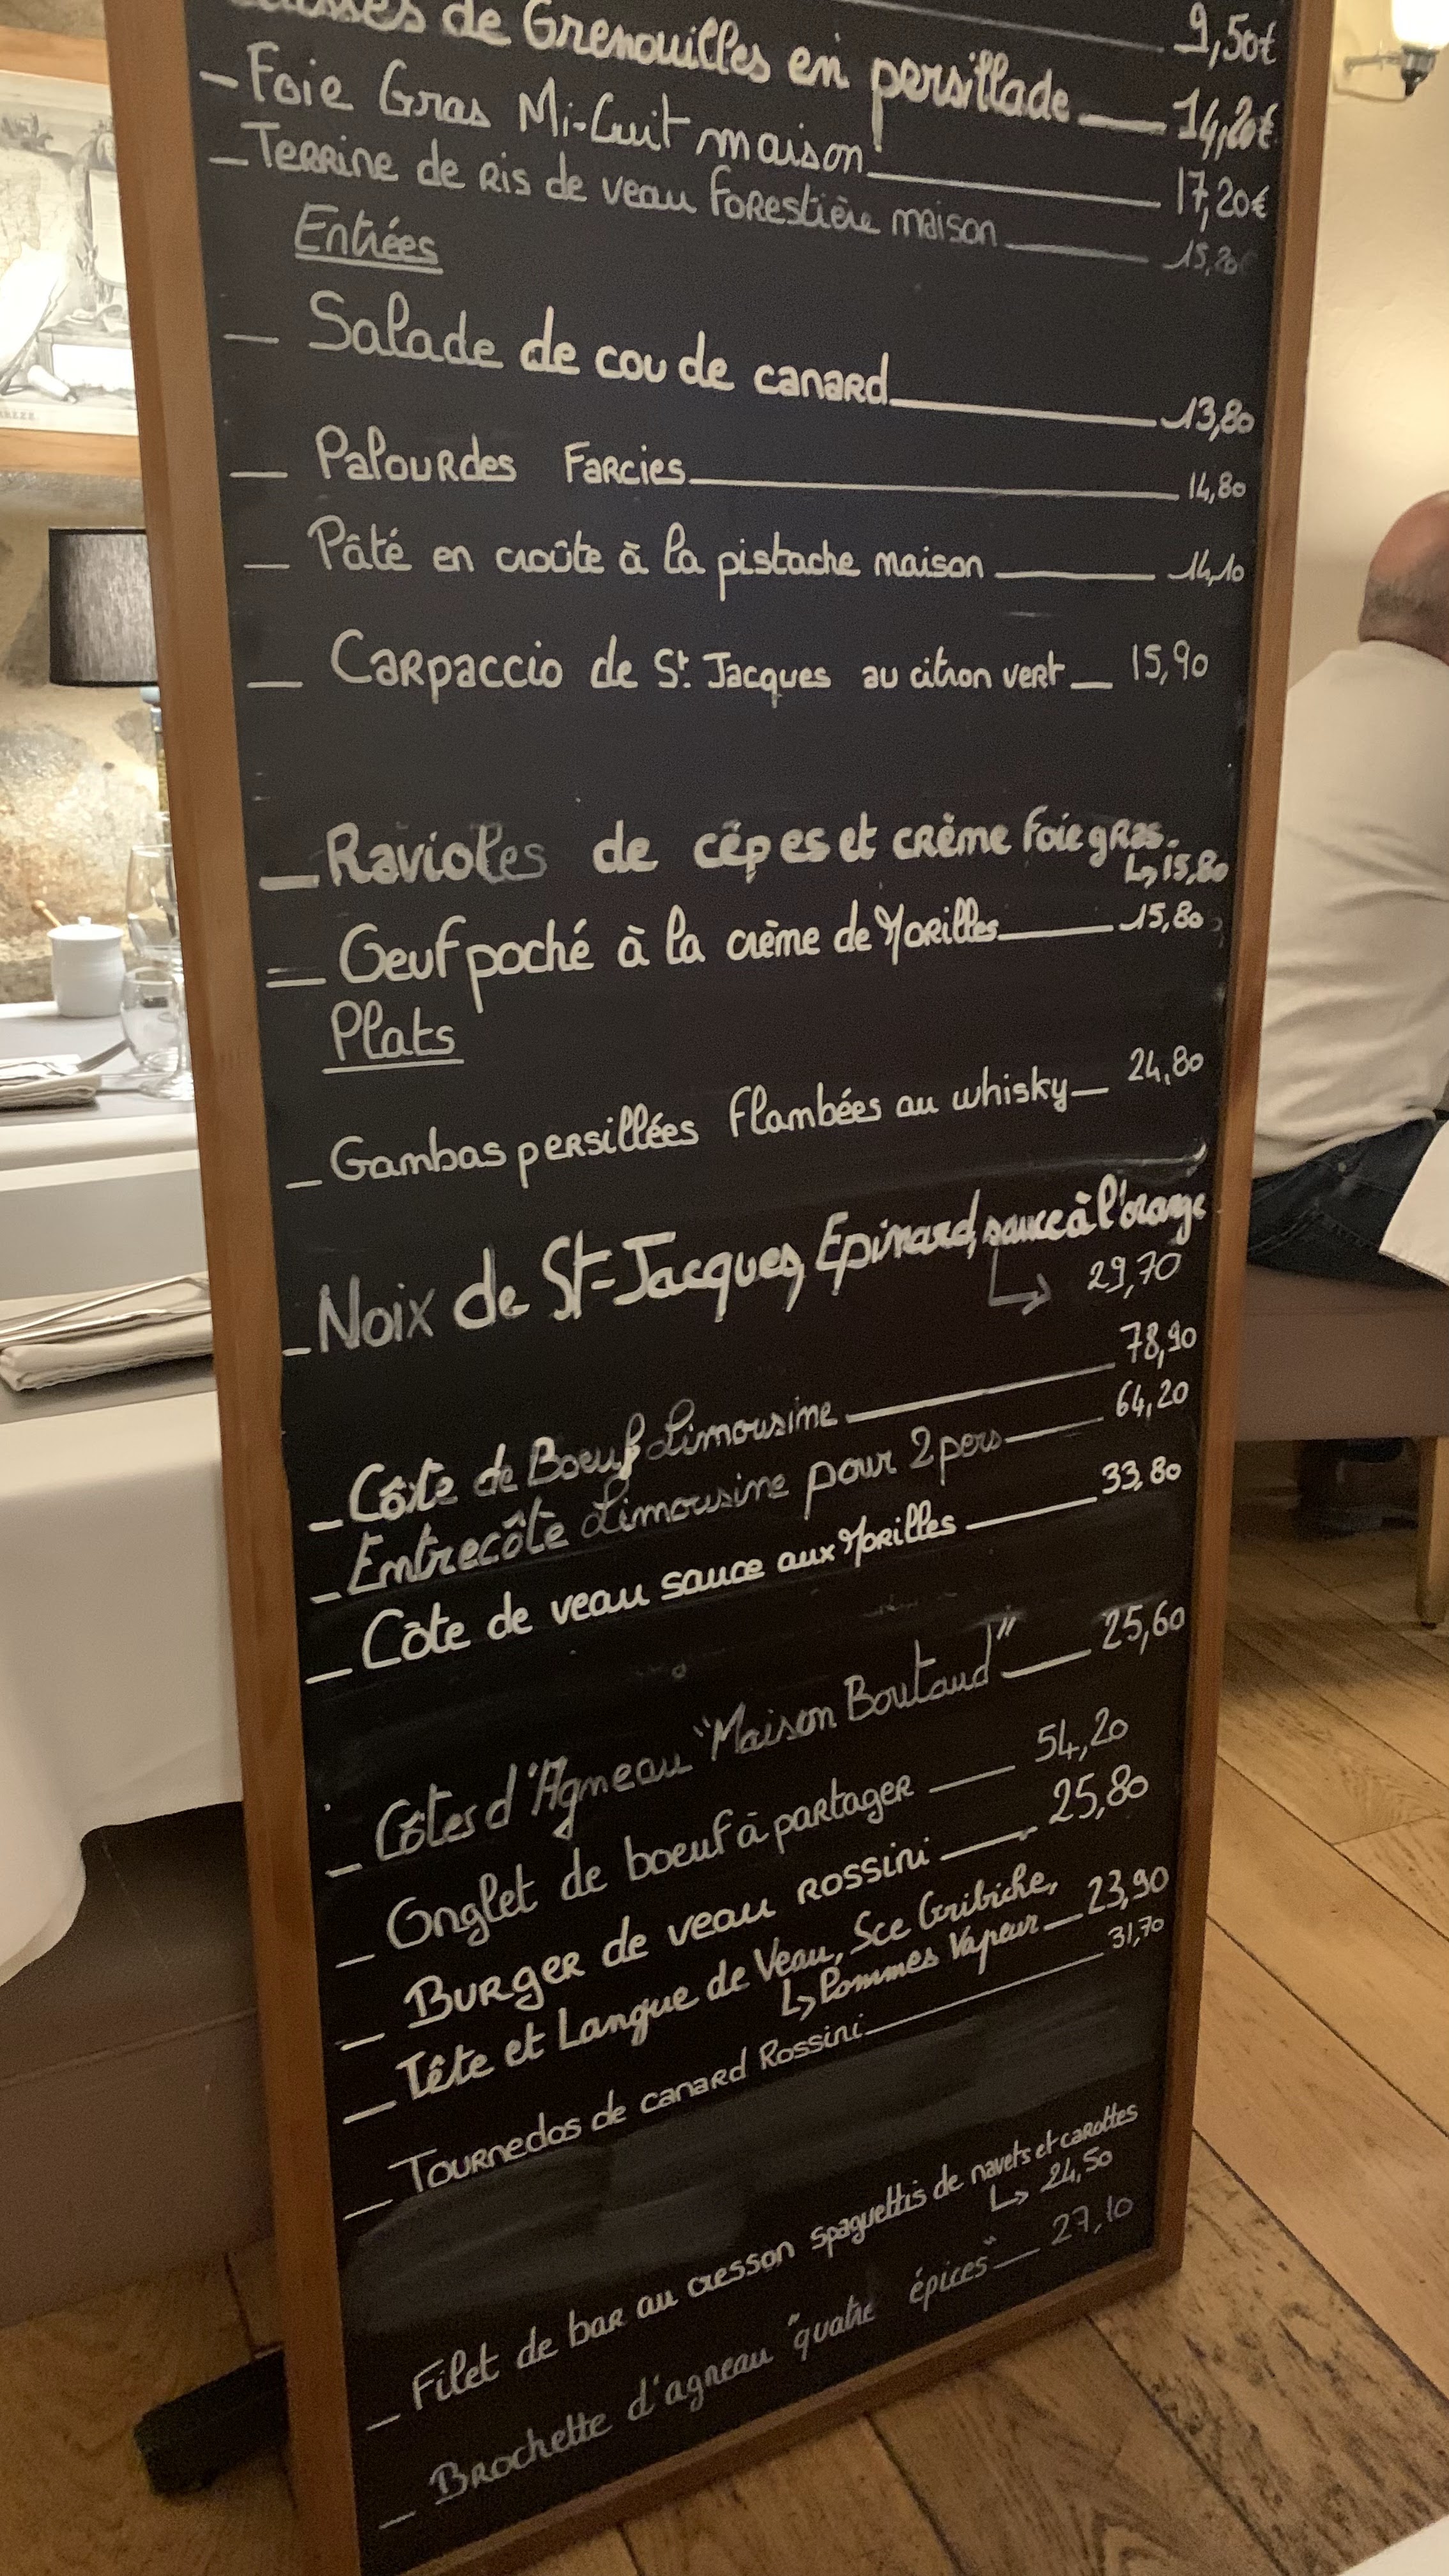 9,50€
de Grenouilles en persillade 14,20€
- Foie Gras Mi-Cuit maison 17,20€
- Terrine de Ris de veau Forestière maison 15,20€
Entrées
- Salade de cou de canard 13,80
- Palourdes Farcies 14,80
- Pâté en croûte à la pistache maison 14,10
- Carpaccio de St Jacques au citron vert 15,90
- Ravioles de cêpes et crème foie gras.
↳ 15,80
- Oeuf poché à la crème de Morilles 15,80
Plats
- Gambas persillées Flambées au whisky 24,80
- Noix de St-Jacques, Epinard, sauce à l'orange
↳ 29,70
- Côte de Boeuf Limousine 78,90
- Entrecôte Limousine pour 2 pers 64,20
- Côte de veau sauce aux Morilles 33,80
- Côtes d'Agneau "Maison Boutaud" 25,60
- Onglet de boeuf à partager 54,20
- Burger de veau Rossini 25,80
- Tête et Langue de Veau, Sce Gribiche,
↳ Pommes Vapeur 23,90
- Tournedos de canard Rossini 31,70
- Filet de bar au cresson spaguettis de navets et carottes
↳ 24,50
- Brochette d'agneau "quatre épices" 27,10